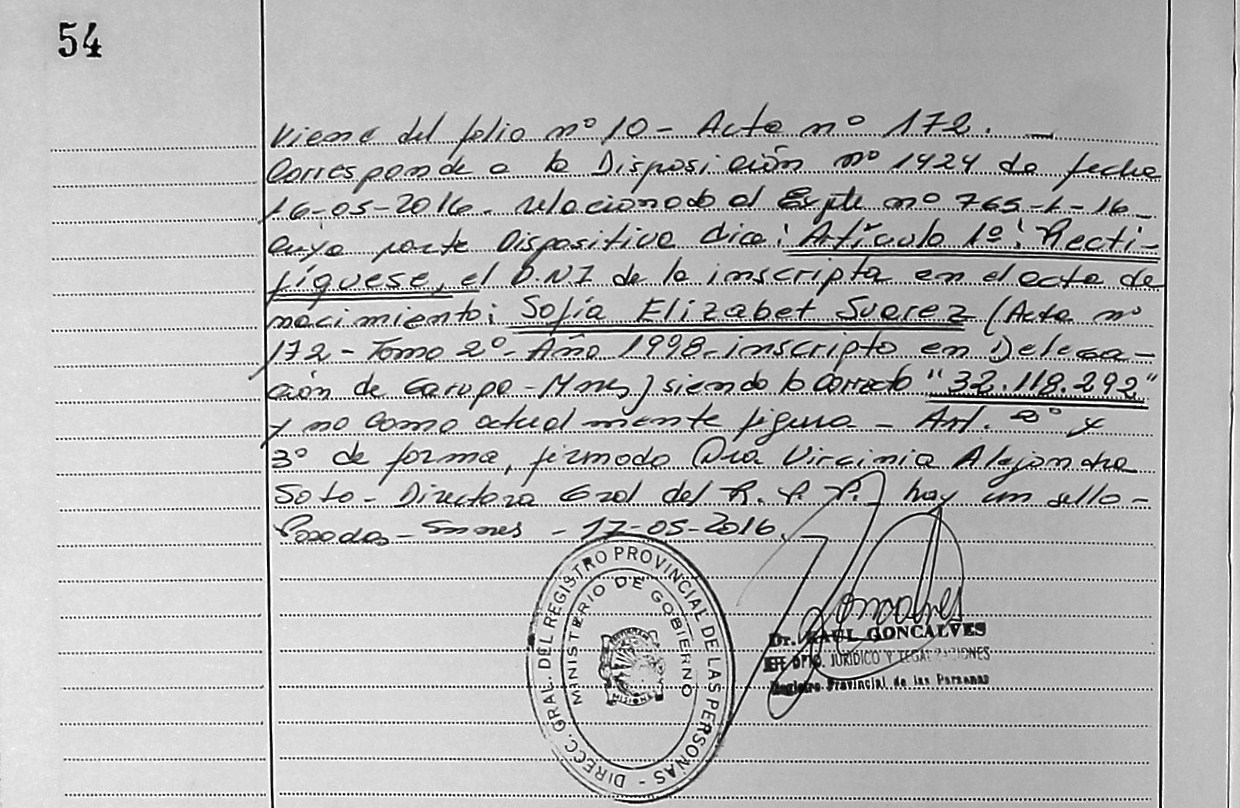 54
Viene del folio nº 10 - Acta nº 172. -
Corresponde a la Disposición nº 1424 de fecha
16-05-2016. relacionado al Expte nº 765-L-16-
cuya parte Dispositiva dice: Artículo 1º: Recti-
fíquese, el D.N.I de la inscripta en el acta de
nacimiento: Sofía Elizabet Suarez (Acta nº
172 - Tomo 2º - Año 1998 - inscripto en Delega-
ción de Garupa - Mnes) siendo lo correcto "32.118.292"
y no como actualmente figura - Art. 2º y
3º de forma, firmado Dra Virginia Alejandra
Soto - Directora Gral del R. P. P. hay un sello -
Posadas - Mnes - 17-05-2016. -
DIRECC. GRAL. DEL REGISTRO PROVINCIAL DE LAS PERSONAS -
MINISTERIO DE GOBIERNO
MISIONES
Dr. RAUL GONCALVES
JEFE DPTO. JURIDICO Y LEGALIZACIONES
Registro Provincial de las Personas